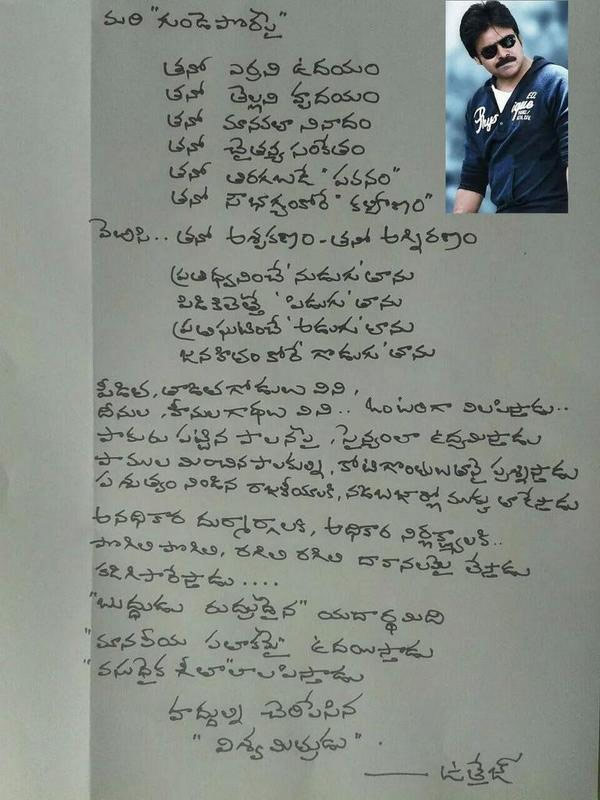 మరి "గుండెపొరపై"
తనో ఎర్రని ఉదయం
తనో తెల్లని హృదయం
తనో మానవతా నినాదం
తనో చైతన్య సంకేతం
తనో తిరగబడే "పవనం"
తనో సౌభాగ్యంకోరే "కళ్యాణం"
వెరసి.. తనో అశ్రుకణం - తనో అగ్నిరణం
ప్రతిధ్వనించే 'నుడుగు' తాను
పిడికిలెత్తే 'పిడుగు' తాను
ప్రతిఘటించే 'అడుగు' తాను
జనహితం కోరే 'గొడుగు' తాను
పీడిత, తాడిత గోడులు విని,
దీనుల, హీనుల గాథలు విని.. ఒంటరిగా విలపిస్తాడు..
పాకురు పట్టిన పాలనపై, సైన్యంలా ఉద్యమిస్తాడు
పాముల మించిన పాలకుల్ని, కోటిగొంతుకలతానై ప్రశ్నిస్తాడు
పశుత్వం నిండిన రాజకీయాలకి, నడిబజార్లో ముక్కు తాడేస్తాడు
అనధికార దుర్మార్గాలకి, అధికార నిర్లక్ష్యాలకి..
పొగిలి పొగిలి, రగిలి రగిలి దావానలమై లేస్తాడు
కడిగిపారేస్తాడు ....
"బుద్ధుడు రుద్రుడైన" యదార్థమిది
"మానవీయ పతాకమై" ఉదయిస్తాడు
"వసుధైక గీతా"లాలపిస్తాడు
హద్దుల్ని చెరిపేసిన
"విశ్వమిత్రుడు".
—— ఉత్తేజ్